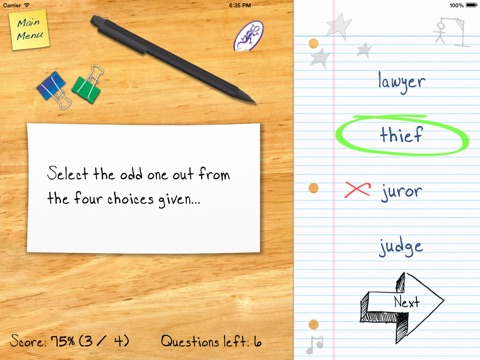 Carrier
6:35 PM
100%
Main
Menu
Select the odd one out from
the four choices given...
lawyer
thief
juror
judge
Next
Score: 75% (3 / 4)
Questions left: 6